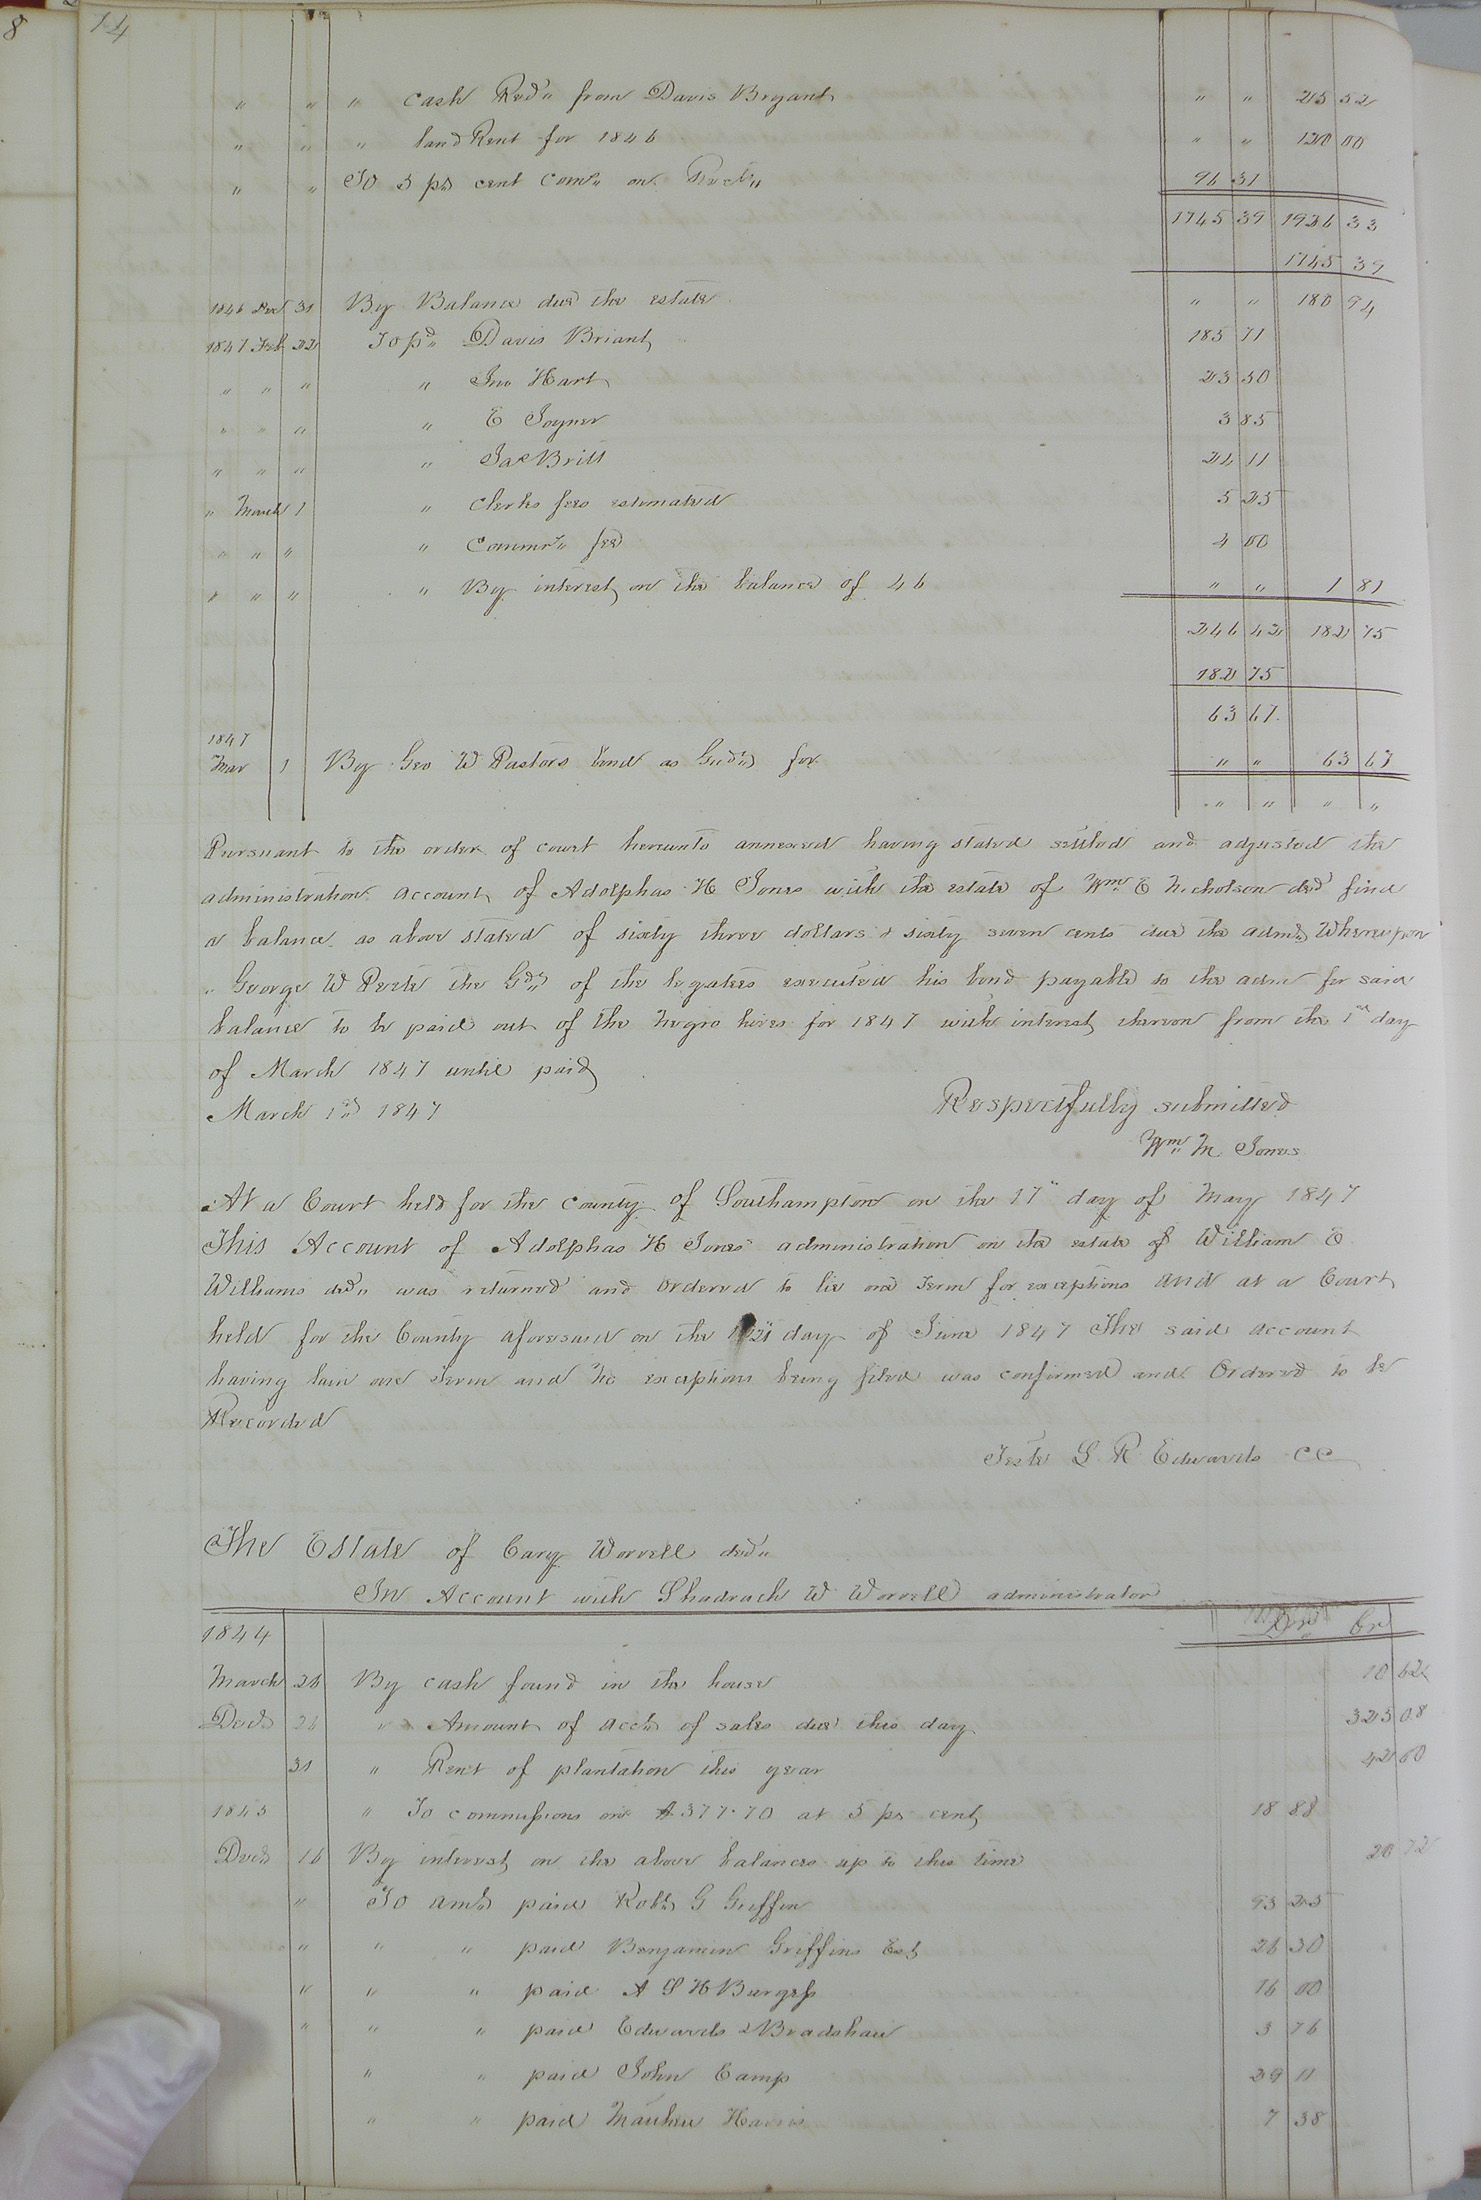 8
14
" " " cash Recd" from Davis Bryant " " 25 52
" " " land Rent for 1846 " " 120 00
" " To 5 pr cent Com" on Recpt" 96 31
1745 39 1926 33
1745 39
1846 Dec 31 By Balance due the estate " " 180 94
1847 Feb 22 To pd" Davis Briant 185 71
" " " " Jno Hart 23 50
" " " " E Joyner 3 85
" " " " Jas Britt 24 11
" March 1 " Clerks fees estimated 5 25
" " " " Commrs" fee 4 00
" " " " By interest on the balance of 46 " " 1 81
246 42 182 75
182 75
63 67
1847
Mar 1 By Geo W bond as Gudn" for " " 63 67
" " " "
Pursuant to the order of court hereunto annexed having stated settled and adjusted the
administration account of Adolphas H Jones with the estate of Wm E Nicholson decd find
a balance as above stated of sixty three dollars & sixty seven cents due the admr" Whereupon
" George W the Gdn" of the legatees executed his bond payable to the admr for said
balance to be paid out of the Negro hires for 1847 with interest thereon from the 1st day
of March 1847 until paid
March 1st 1847 Respectfully submitted
Wm" M Jones
At a Court held for the County of Southampton on the 17" day of May 1847
This Account of Adolphas H Jones administration on the estate of William E
Williams decd" was returned and ordered to lie one Term for exceptions and at a Court
held for the County aforesaid on the 21 day of June 1847 The said account
having lain one Term and No exceptions being filed was confirmed and Ordered to be
Recorded
Teste L R Edwards CC
The Estate of Cary Worrell decd"
In Account with Shadrach W Worrell administrator
1844 Dr" Cr
March 26 By cash found in the house 10 62
Decr 26 " Amount of acct" of sales due this day 325 08
31 " Rent of plantation this year 42 00
1845 " To commissions on $377.70 at 5 pr cent 18 88
Decr 16 By interest on the above balances up to this time 20 72
" To amt" paid Robt G Griffin 93 25
" " " paid Benjamin Griffins Est 26 30
" " " paid A S H Burgess 16 00
" " " paid Edwards & Bradshaw 3 76
" " paid John Camp 29 11
" " paid Mathew Harris 7 38